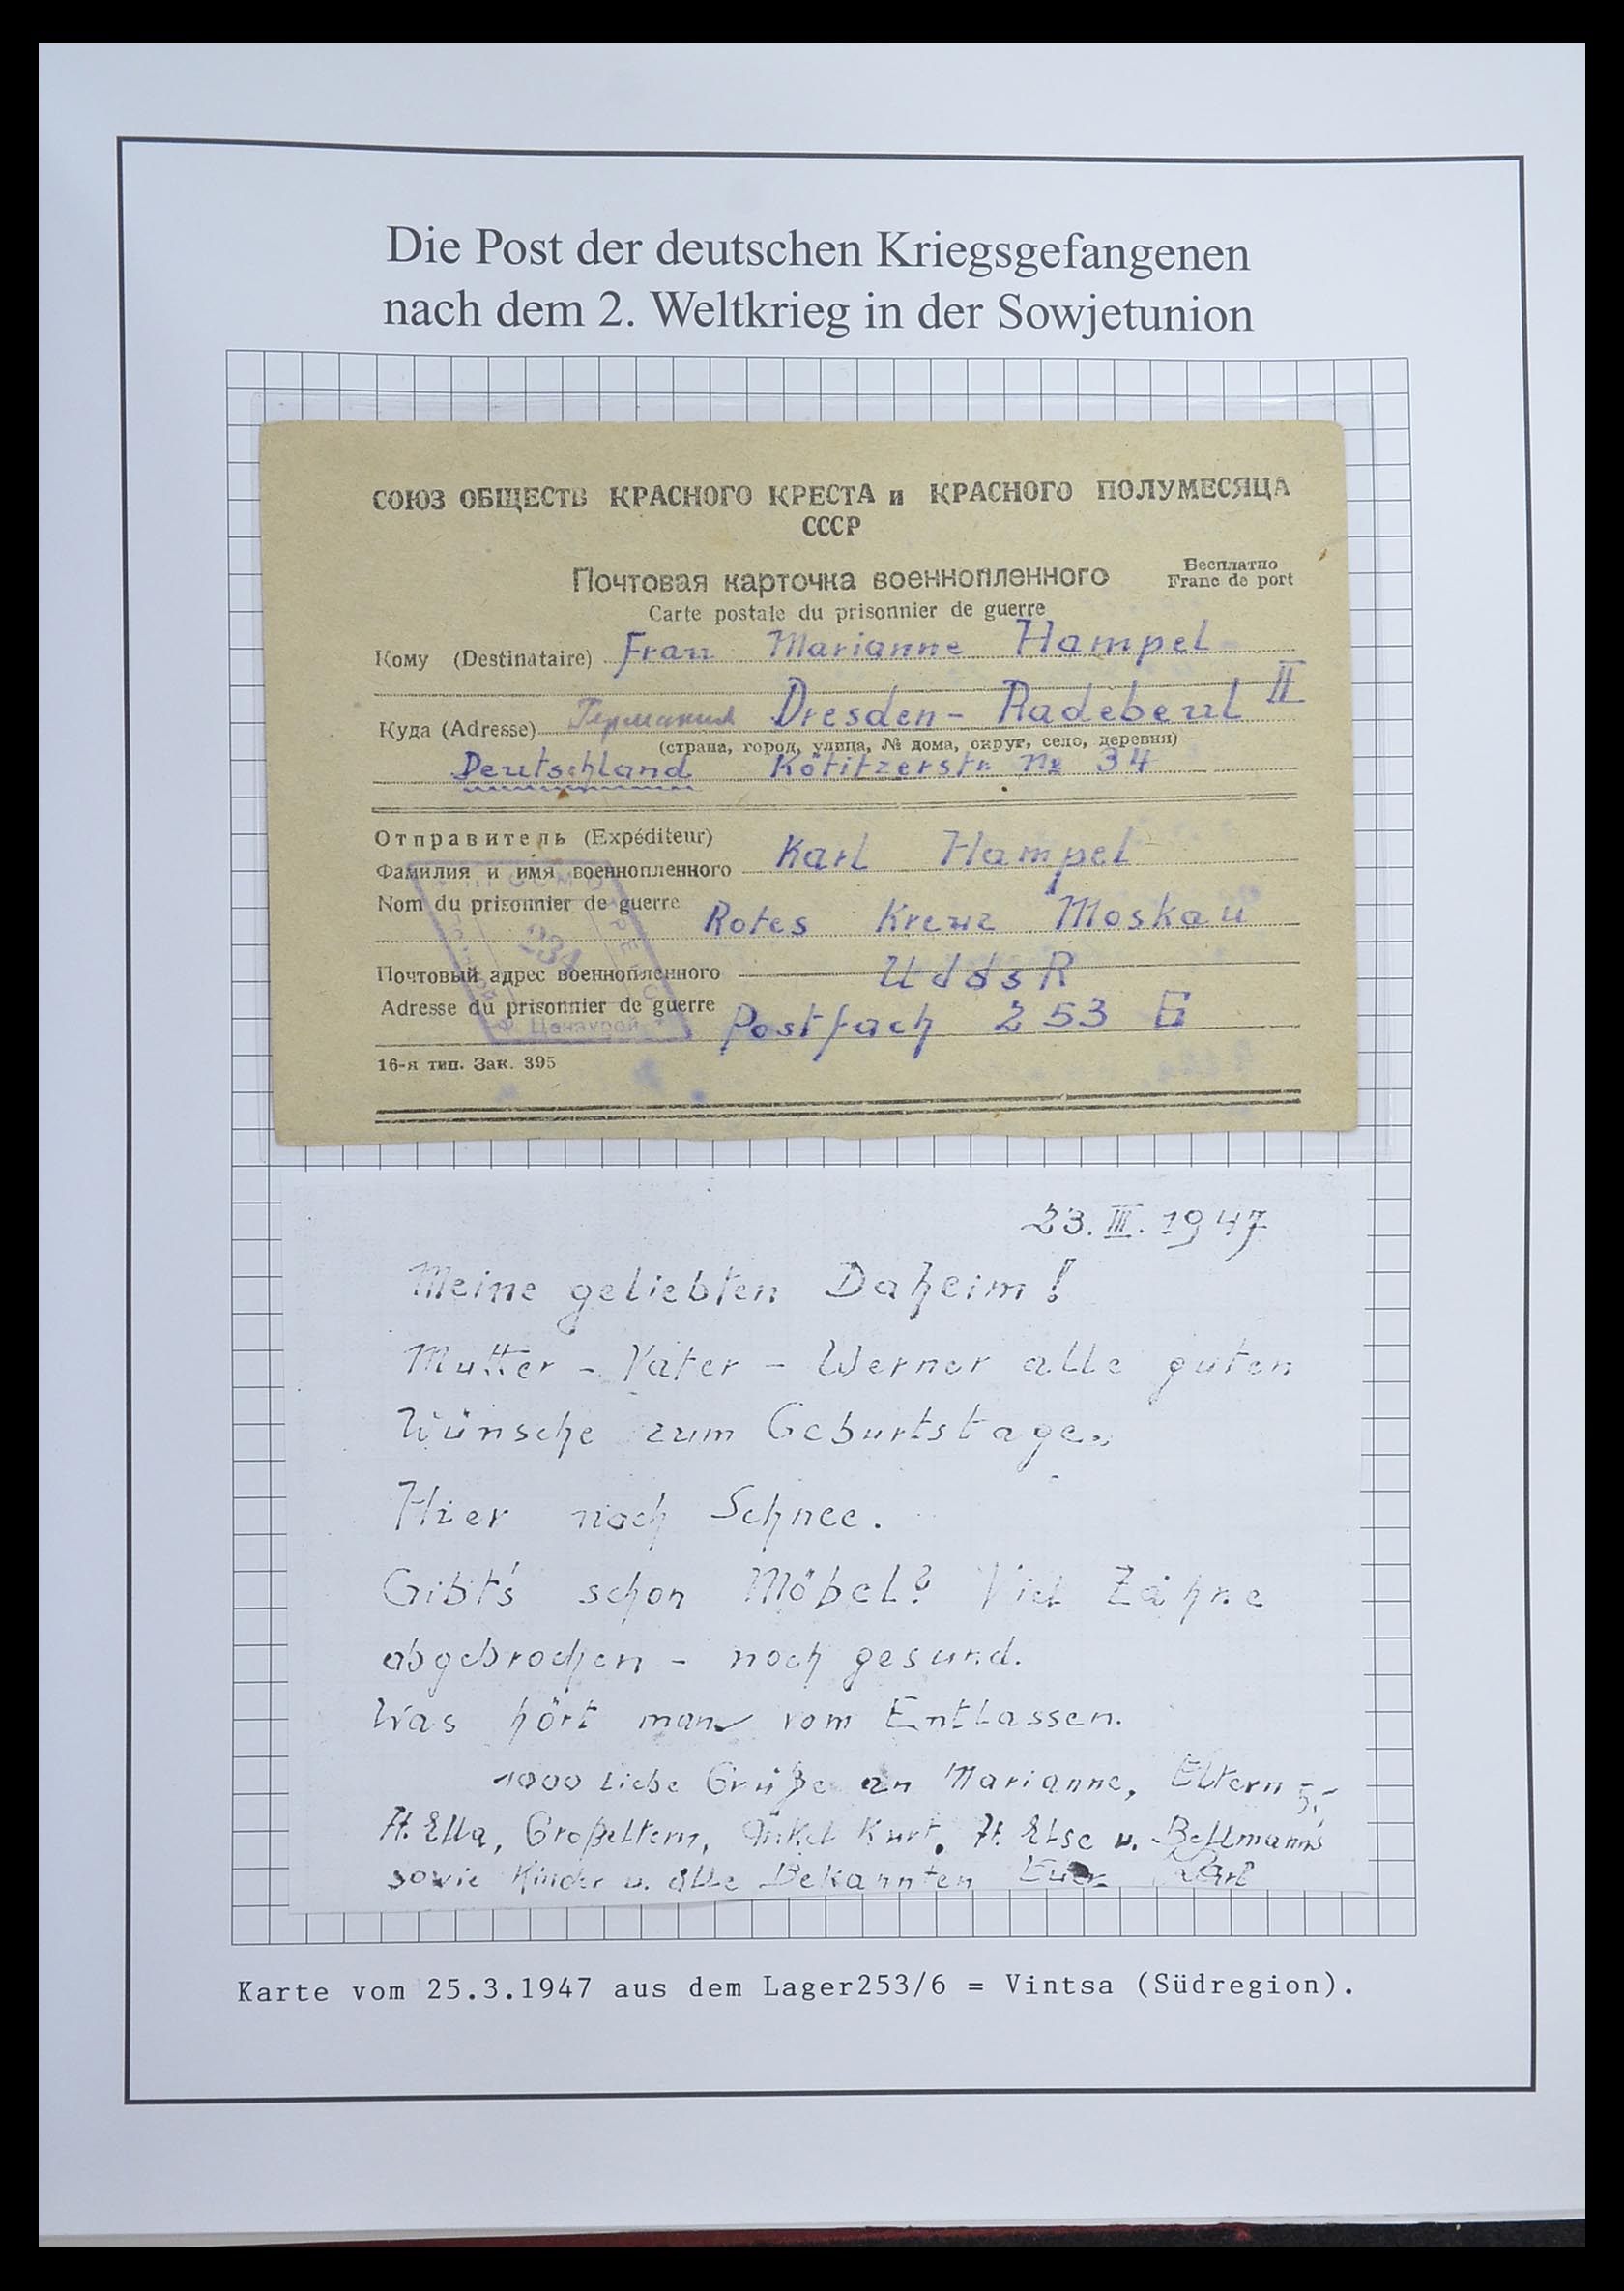 Die Post der deutschen Kriegsgefangenen
nach dem 2. Weltkrieg in der Sowjetunion
СОЮЗ ОБЩЕСТВ КРАСНОГО КРЕСТА и КРАСНОГО ПОЛУМЕСЯЦА
СССР
Почтовая карточка военнопленного
Бесплатно
Franc de port
Carte postale du prisonnier de guerre
Кому (Destinataire) Frau Marianne Hampel
Куда (Adresse) Германия Dresden - Radebeul II
(страна, город, улица, № дома, округ, село, деревня)
Deutschland Kötitzerstr. № 34
Отправитель (Expéditeur)
Фамилия и имя военнопленного Karl Hampel
Nom du prisonnier de guerre Rotes Kreuz Moskau
Почтовый адрес военнопленного UddsR
Adresse du prisonnier de guerre Postfach 253 6
234
Цензурой
16-я тип. Зак. 395
23. III. 1947
Meine geliebten Daheim!
Mutter - Vater - Werner alle guten
Wünsche zum Geburtstage.
Hier noch Schnee.
Gibt's schon Möbel? Viel Zähne
abgebrochen - noch gesund.
Was hört man vom Entlassen.
1000 liebe Grüße an Marianne, Eltern
Ella, Großeltern, Onkel Kurt, Else u. Bellmanns
sowie Kinder u. alle Bekannten Euer Karl
5,-
Karte vom 25.3.1947 aus dem Lager253/6 = Vintsa (Südregion).